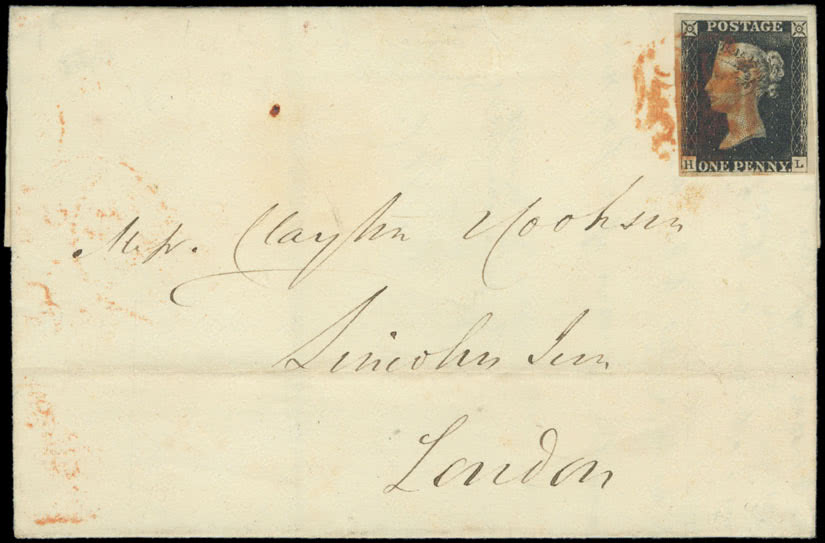 POSTAGE
H L
ONE PENNY.
Clayton Cookson
Lincolns Inn
London